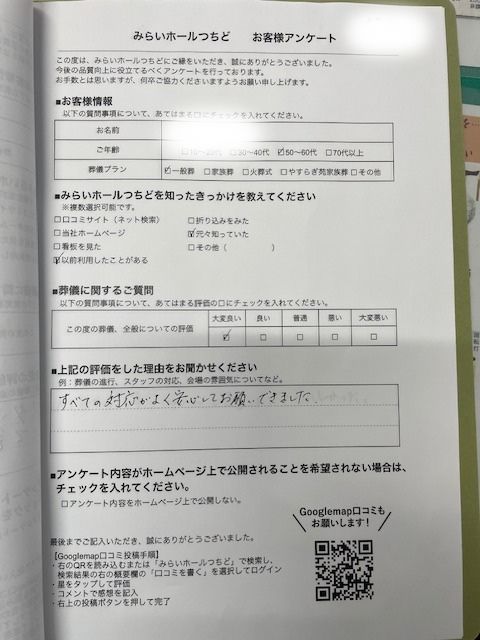 みらいホールつちど　お客様アンケート
この度は、みらいホールつちどにご縁をいただき、誠にありがとうございました。
今後の品質向上に役立てるべくアンケートを行っております。
お手数とは思いますが、何卒ご協力くださいますようお願い申し上げます。
■お客様情報
以下の質問事項について、あてはまる□にチェックを入れてください。
お名前
ご年齢 □10〜20代 □30〜40代 ☑50〜60代 □70代以上
葬儀プラン ☑一般葬 □家族葬 □火葬式 □やすらぎ苑家族葬 □その他
■みらいホールつちどを知ったきっかけを教えてください
※複数選択可能です。
□口コミサイト（ネット検索） □折り込みをみた
□当社ホームページ ☑元々知っていた
□看板を見た □その他（　　　　　）
☑以前利用したことがある
■葬儀に関するご質問
以下の質問事項について、あてはまる評価の□にチェックを入れてください。
大変良い 良い 普通 悪い 大変悪い
この度の葬儀、全般についての評価 ☑ □ □ □ □
■上記の評価をした理由をお聞かせください
例：葬儀の進行、スタッフの対応、会場の雰囲気についてなど。
すべての対応がよく安心してお願いできました
■アンケート内容がホームページ上で公開されることを希望されない場合は、
チェックを入れてください。
□アンケート内容をホームページ上で公開しない。
Googlemap口コミも
お願いします！
最後までご記入いただき、誠にありがとうございました。
【Googlemap口コミ投稿手順】
・右のQRを読み込むまたは「みらいホールつちど」で検索し、
検索結果の右の概要欄の「口コミを書く」を選択してログイン
・星をタップして評価
・コメントで感想を記入
・右上の投稿ボタンを押して完了